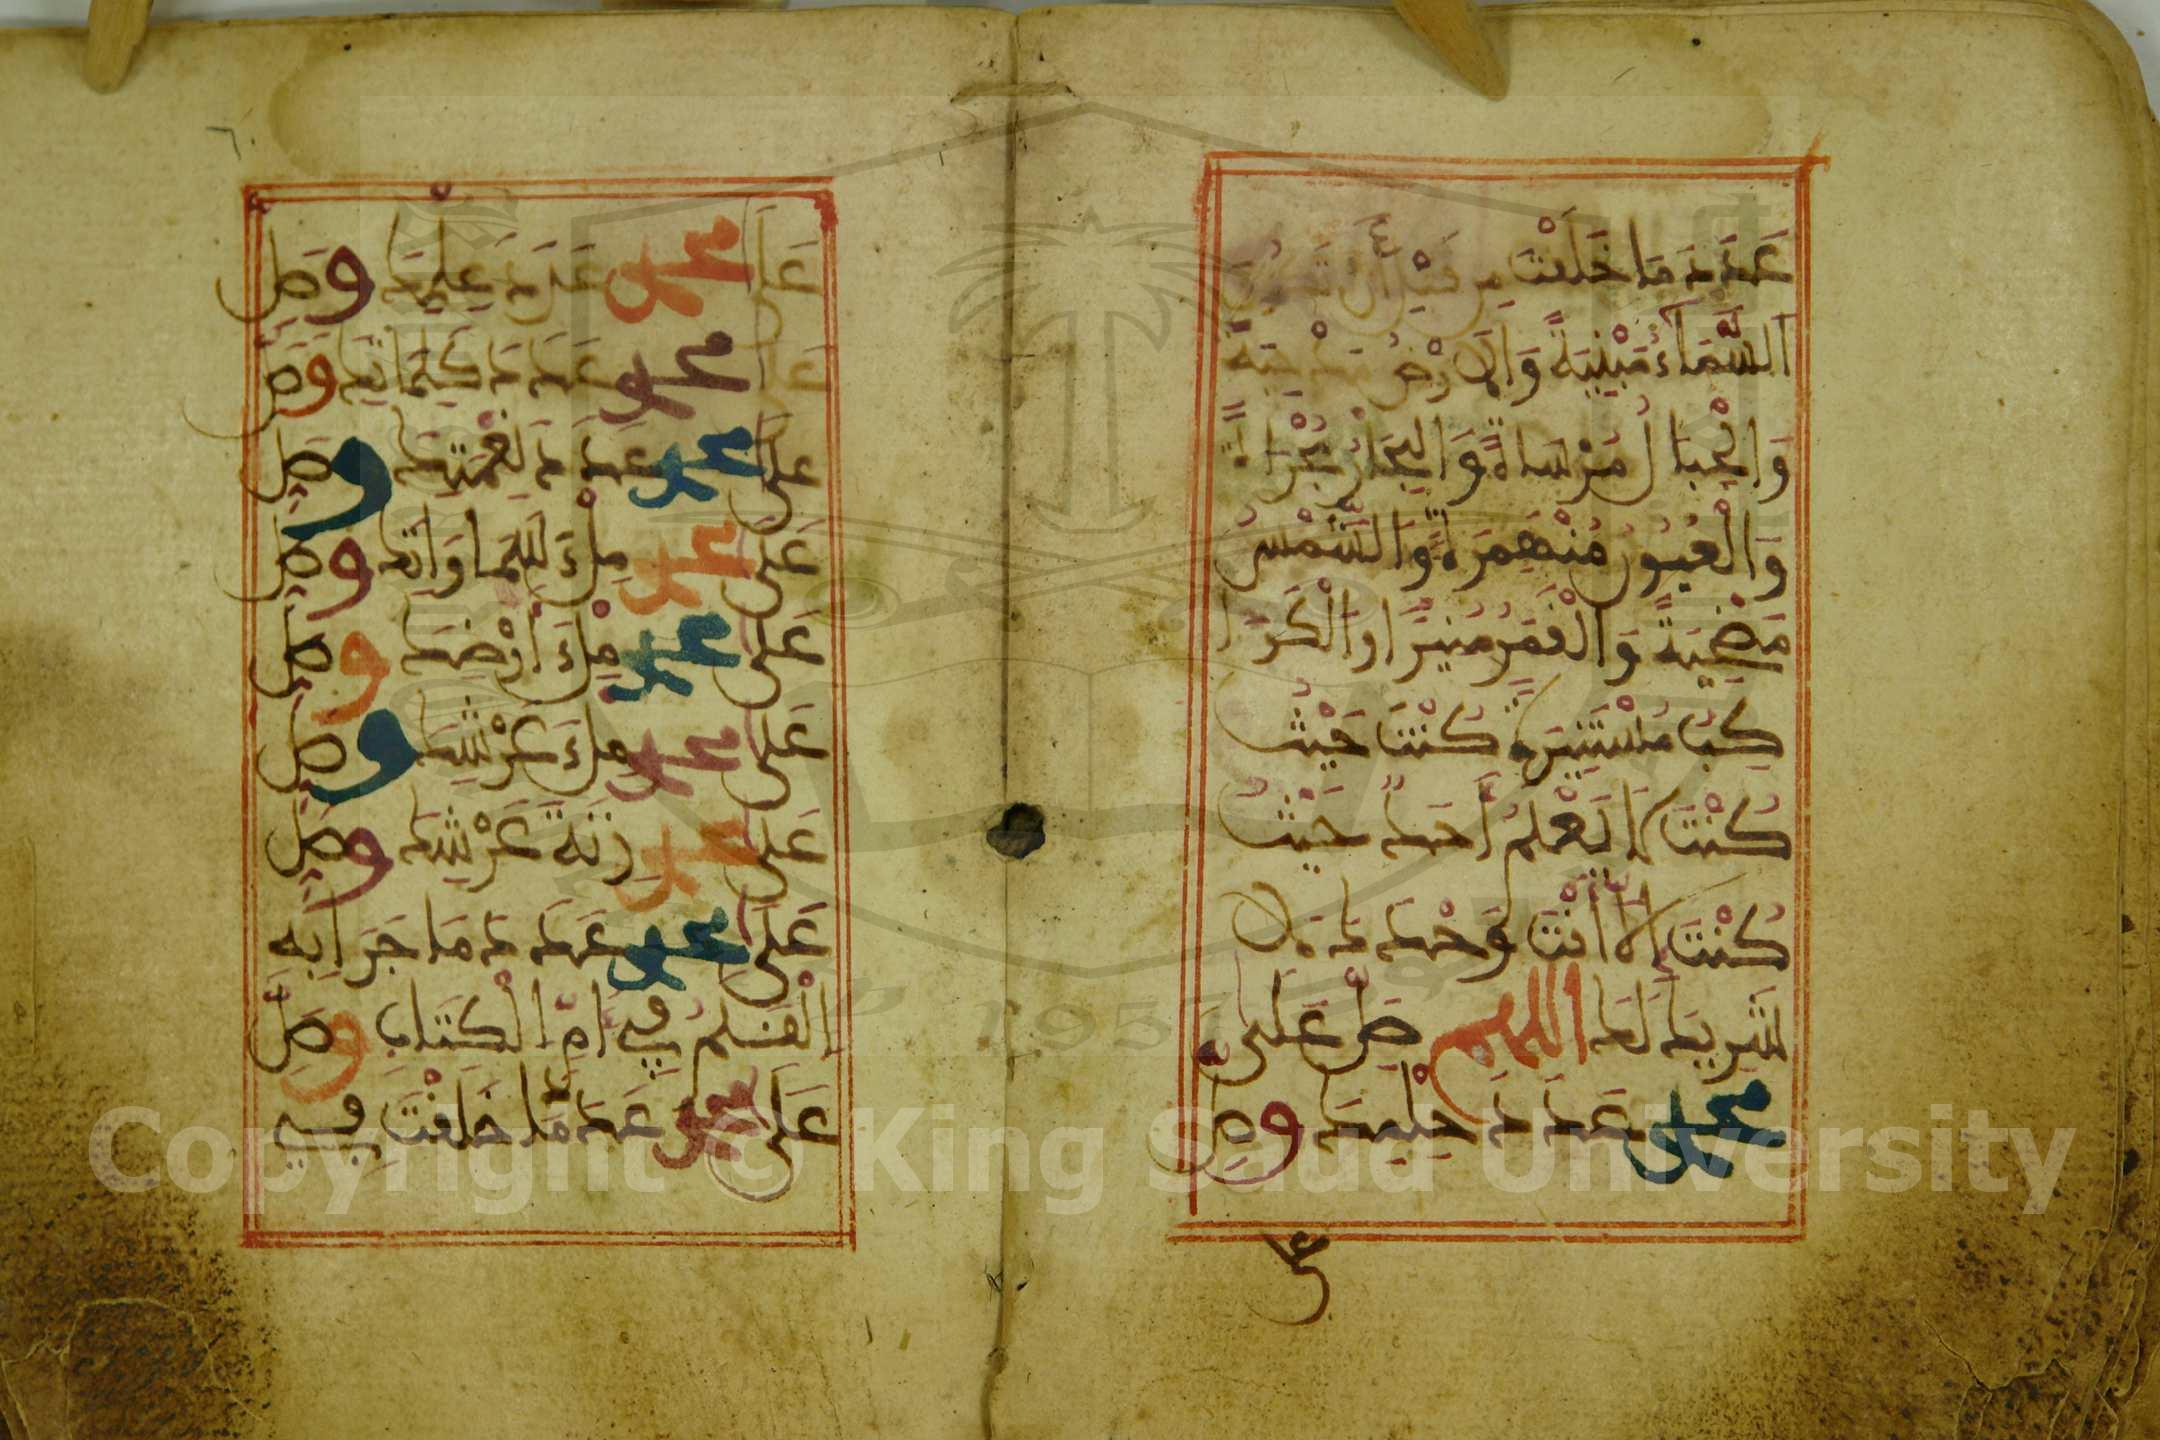 عَدَدَ مَا خَلَقْتَ مِن قَبْلِ أَن تَكُونَ
السَّمَاءُ مَبْنِيَةً وَالَارْضُ مَدْحِيَةً
وَالْجِبَالُ مُرْسَاةً وَالْبِحَارُ مُجْرَاةً
وَالْعُيُونُ مُنْهَمِرَةً وَالشَّمْسُ
مُضْحِيَةً وَالْقَمَرُ مُنِيرًا وَالْكَوَا
كِبُ مُسْتَنِيرَةً كُنْتَ حَيْثُ
كُنْتَ لَا يَعْلَمُ أَحَدٌ حَيْثُ
كُنْتَ إِلَّا أَنْتَ وَحْدَكَ لَا
شَرِيكَ لَكَ اللهم صَلِّ عَلَى
محمد عَدَدَ حِلْمِكَ وَصَلِّ
عَلَى
عَلَى محمد عَدَدَ عِلْمِكَ وَصَلِّ
عَلَى محمد عَدَدَ كَلِمَاتِكَ وَصَلِّ
عَلَى محمد عَدَدَ نِعْمَتِكَ وَصَلِّ
عَلَى محمد مِلْءَ سَمَاوَاتِكَ وَصَلِّ
عَلَى محمد مِلْءَ أَرْضِكَ وَصَلِّ
عَلَى محمد مِلْءَ عَرْشِكَ وَصَلِّ
عَلَى محمد زِنَةَ عَرْشِكَ وَصَلِّ
عَلَى محمد عَدَدَ مَا جَرَا بِهِ
الْقَلَمُ فِي أُمِّ الْكِتَابِ وَصَلِّ
عَلَى محمد عَدَدَ مَا خَلَقْتَ فِي
Copyright © King Saud University
1957